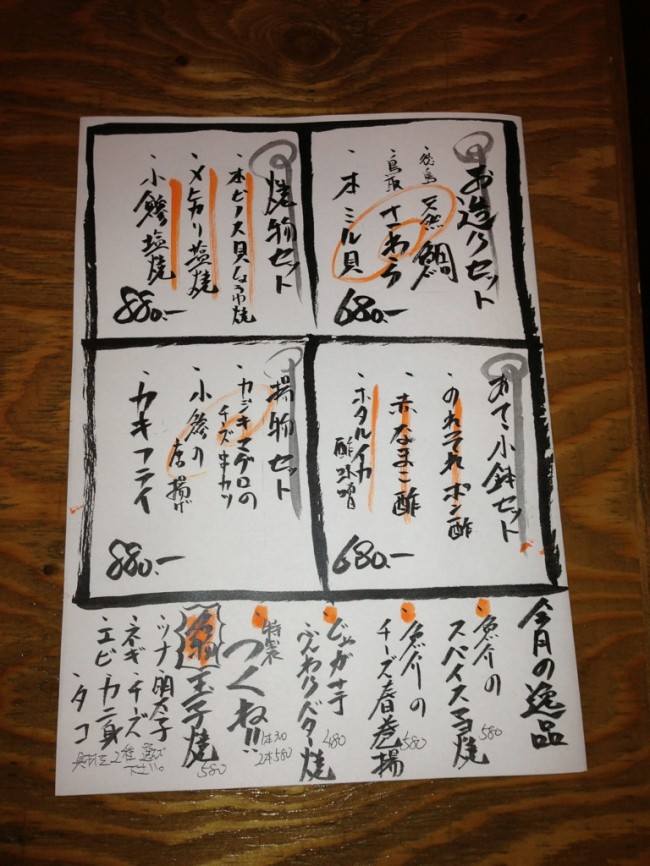 お造りセット
・徳島 天然鯛
・鳥取 さわら
・本ミル貝
680.-
焼物セット
・本ビノス貝しょうゆ焼
・メヒカリ塩焼
・小鯵塩焼
880.-
あて小鉢セット
・のれそれポン酢
・赤なまこ酢
・ホタルイカ
酢味噌
680.-
揚物セット
・カジキマグロの
チーズ串カツ
・小鯵の唐揚げ
・カキフライ
880.-
今月の逸品
魚介の
スパイスマヨ焼
580
魚介の
チーズ春巻揚
580
じゃが芋
ふんわりバター焼
480
特製
つくね!!
1本30
2本580
名物
玉子焼
580
・ツナ・明太子
・ネギ・チーズ
・エビ・カニ身
・タコ
具材を2種選んで
下さい。